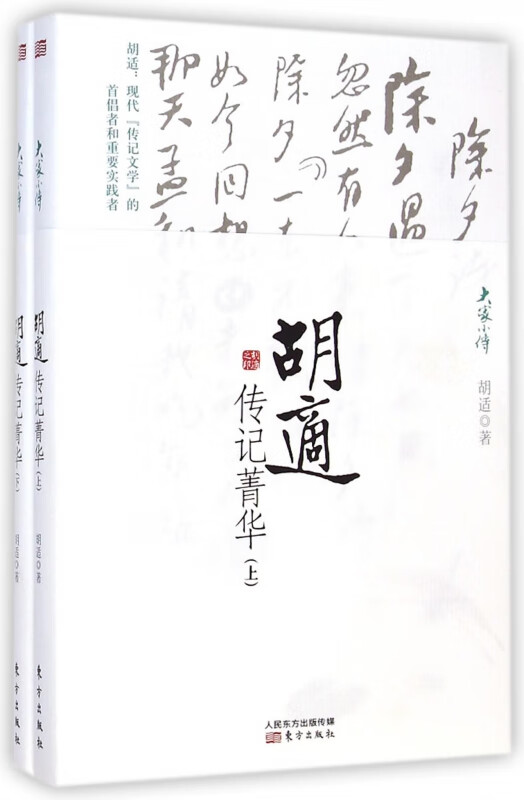 除夕
除夕遇
忽然有
除夕一
如今回想
那天孟和请
胡适：现代『传记文学』的
首倡者和重要实践者
大家小傳
胡适◎著
胡適
传记菁华（上）
人民东方出版传媒
東方出版社
大家小傳
胡適传记菁华（上）
胡适◎著
東方出版社
大家小傳
胡適传记菁华（下）
胡适◎著
東方出版社